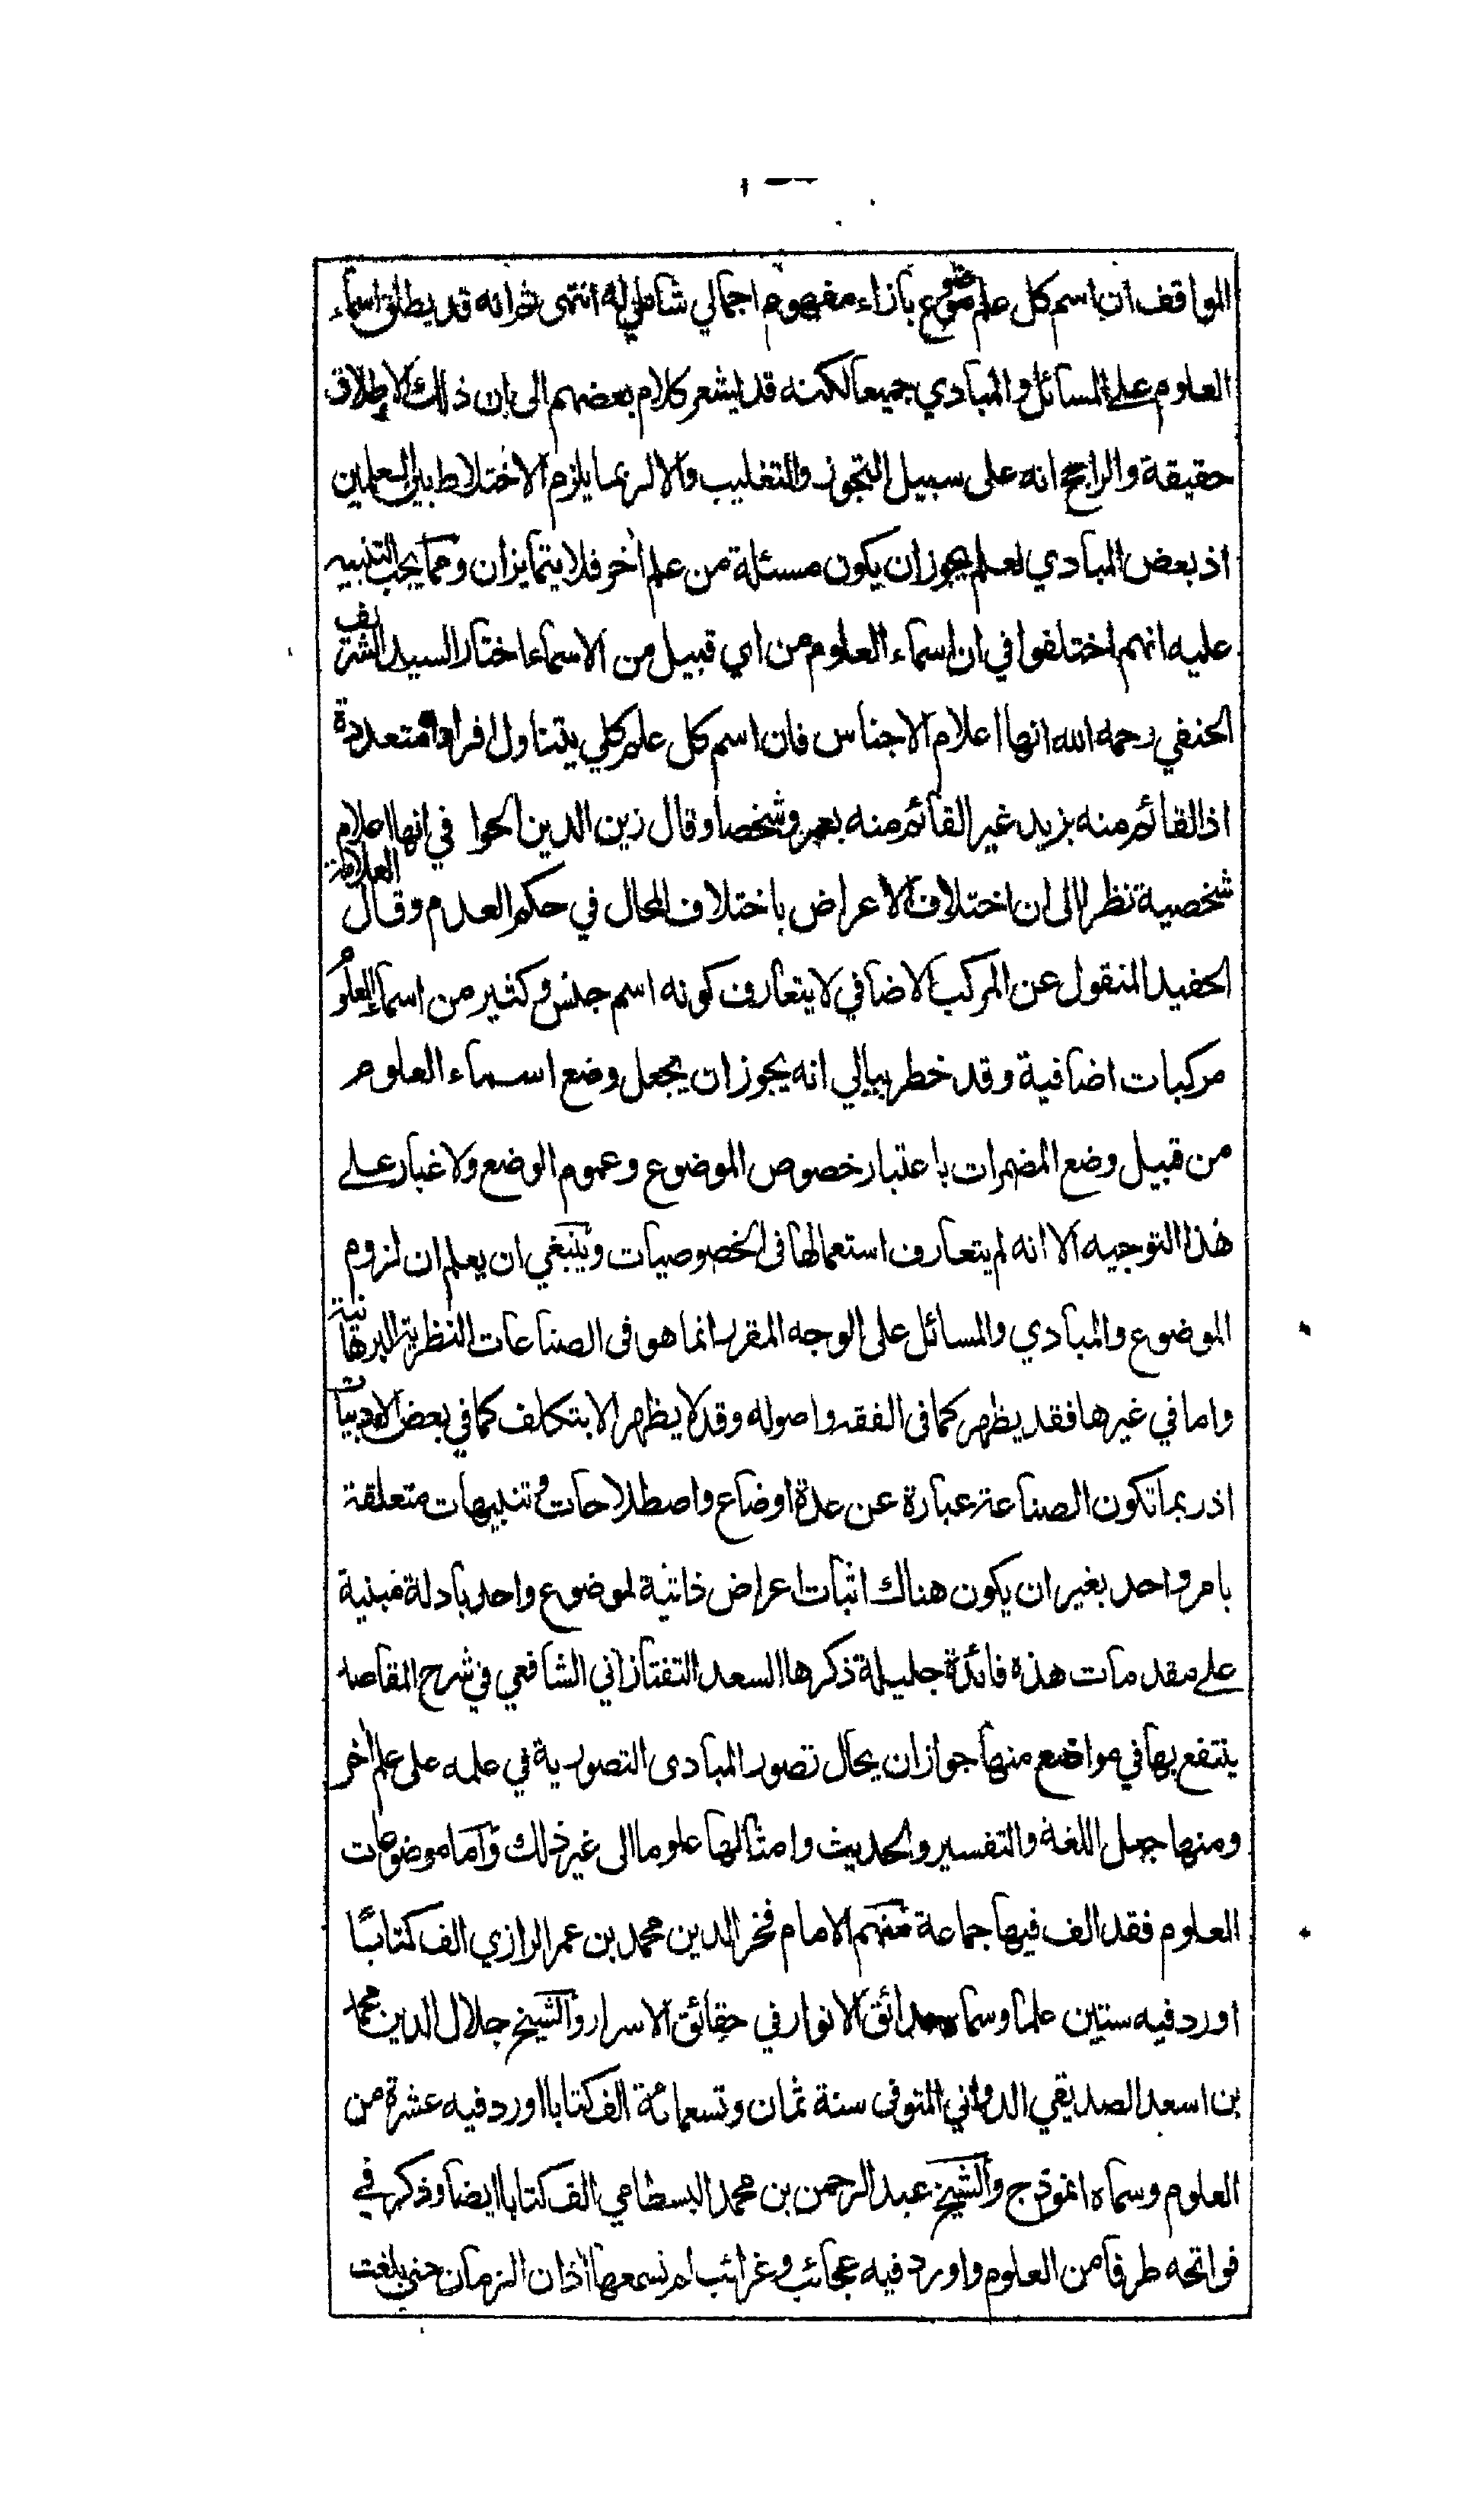 المواقف ان اسم كل علم موضوع بازاء مفهوم اجمالي شامل له انتهى ثم انه قد يطلق اسماء
العلوم على المسائل والمبادي جميعا لكنه قد يشعر كلام بعضهم الى ان ذلك الاطلاق
حقيقة والراجح انه على سبيل التجوز والتغليب والا لربما يلزم الاختلاط بين العلمين
اذ بعض المبادي لعلم يجوز ان يكون مسئلة من علم اخر فلا يتمايزان ومما يجب التنبيه
عليه انهم اختلفوا في ان اسماء العلوم من اي قبيل من الاسماء اختار السيد الشريف
الحنفي رحمه الله انها اعلام الاجناس فان اسم كل علم كلي يتناول افرادا متعددة
اذ القائم منه بزيد غير القائم منه بعمرو شخصا وقال زين الدين الحوا في انها اعلام
شخصية نظرا الى ان اختلاف الاعراض باختلاف المحال في حكم العدم وقال العلامة
الحفيد المنقول عن المركب الاضافي لا يتعارف كونه اسم جنس وكثير من اسماء العلوم
مركبات اضافية وقد خطر ببالي انه يجوز ان يجعل وضع اسماء العلوم
من قبيل وضع المضمرات باعتبار خصوص الموضوع وعموم الوضع ولا غبار على
هذا التوجيه الا انه لم يتعارف استعمالها في الخصوصيات وينبغي ان يعلم ان لزوم
الموضوع والمبادي والمسائل على الوجه المقرر انما هو في الصناعات النظرية البرهانية
واما في غيرها فقد يظهر كما في الفقه واصوله وقد لا يظهر الا بتكلف كما في بعض الادبيات
اذ ربما تكون الصناعة عبارة عن عدة اوضاع واصطلاحات وتنبيهات متعلقة
بامر واحد بغير ان يكون هناك اثبات اعراض ذاتية لموضوع واحد بادلة مبنية
على مقدمات هذه فائدة جليلة ذكرها السعد التفتازاني الشافعي في شرح المقاصد
ينتفع بها في مواضع منها جواز ان يحال تصور المبادي التصورية في علمه على علم اخر
ومنها جعل اللغة والتفسير والحديث وامثالها علوما الى غير ذلك واما موضوعات
العلوم فقد الف فيها جماعة منهم الامام فخر الدين محمد بن عمر الرازي الف كتابًا
اورد فيه ستين علما وسماه حدائق الانوار في حقائق الاسرار والشيخ جلال الدين محمد
بن اسعد الصديقي الدواني المتوفى سنة ثمان وتسعمائة الف كتابا اورد فيه عشرة من
العلوم وسماه انموذج والشيخ عبد الرحمن بن محمد البسطامي الف كتابا ايضا وذكر في
فواتحه طرفا من العلوم واورد فيه عجائب وغرائب لم تسمعها اذان الزمان حتى بلغت